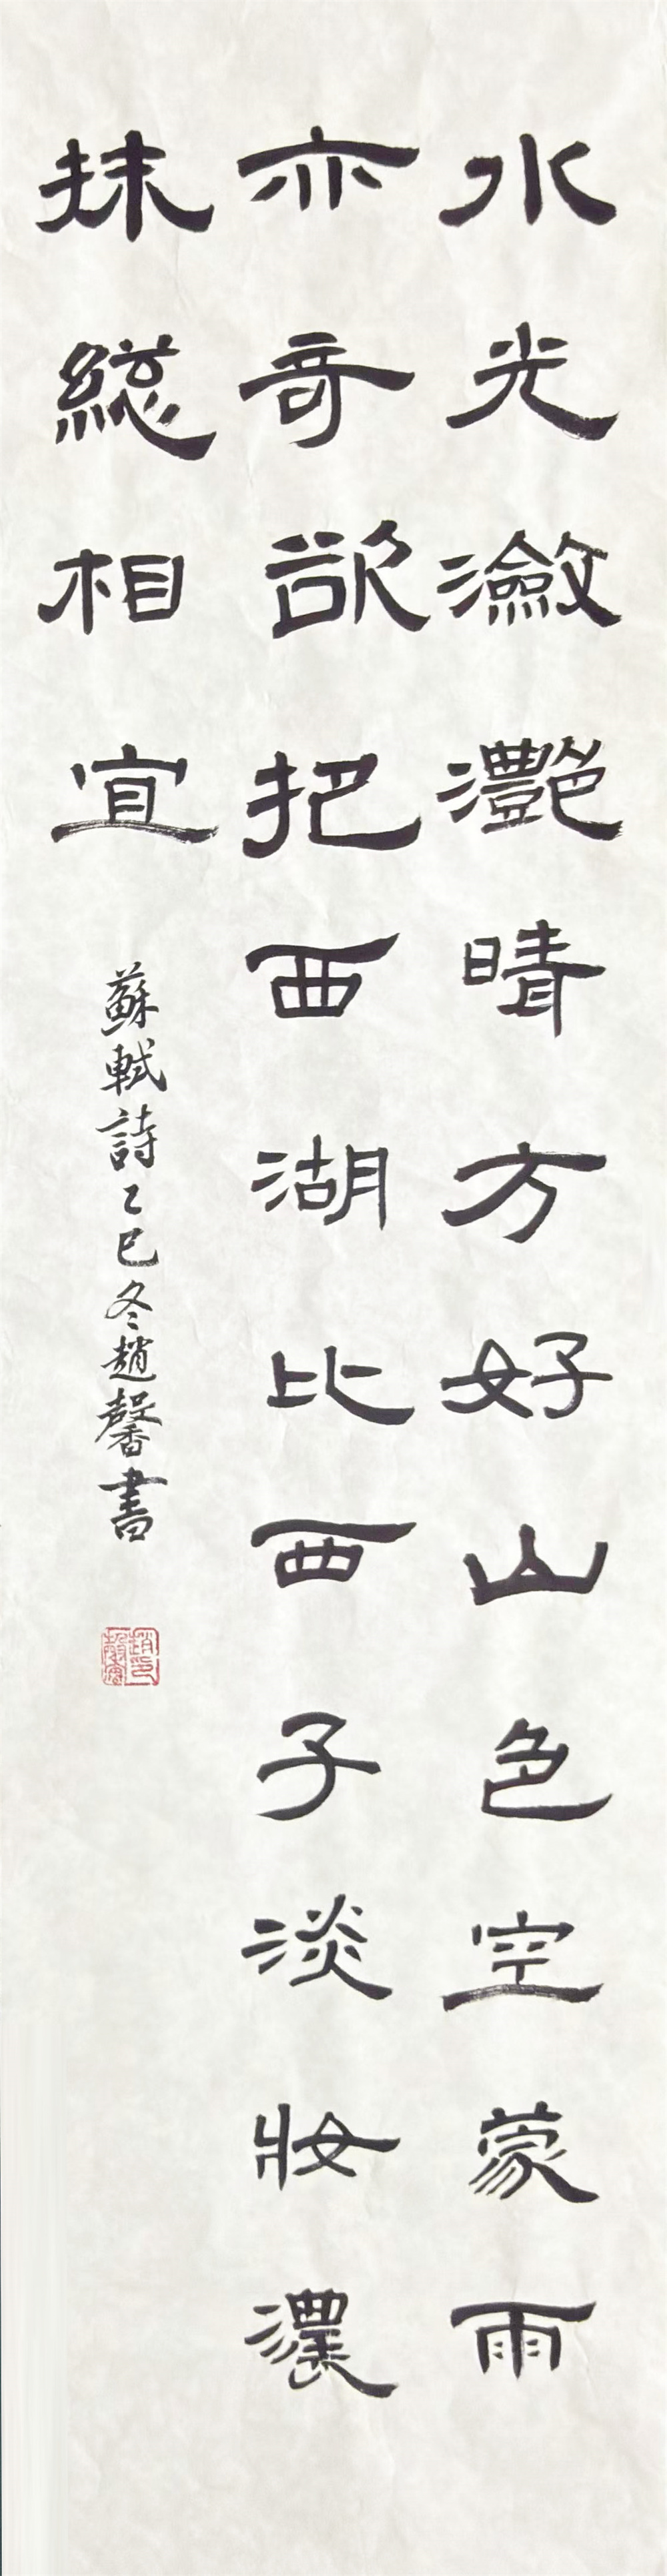 水光瀲灩晴方好山色空蒙雨
亦奇欲把西湖比西子淡妝濃
抹總相宜
蘇軾詩乙巳冬趙馨書